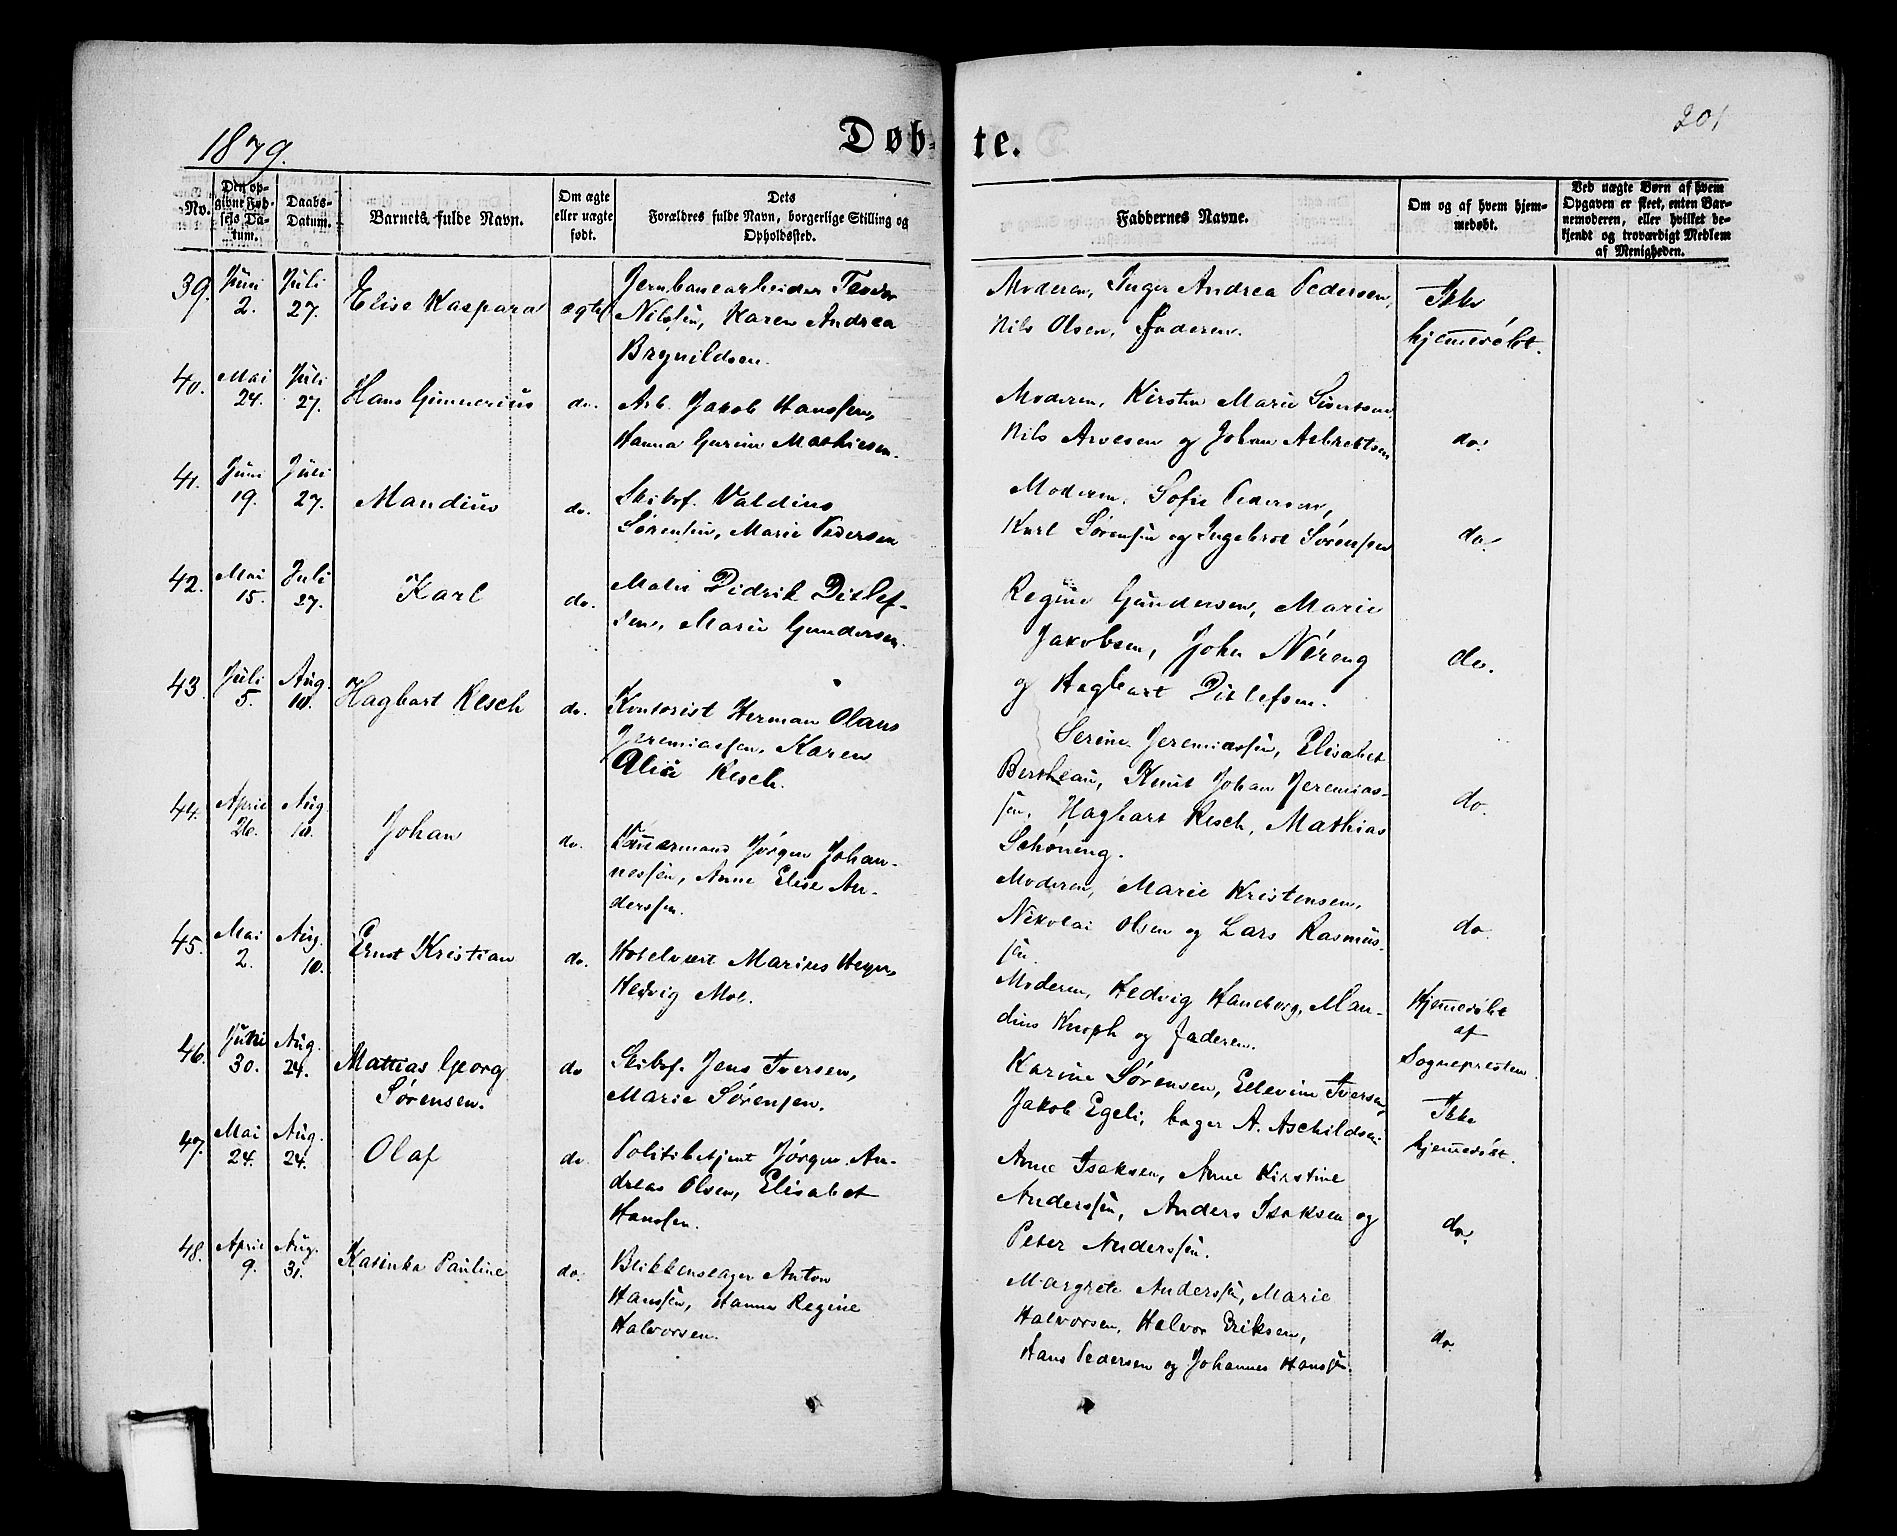 1879.
Døb-
te.
201
No.
Den op-
givne Fød-
sels Da-
tum.
Daabs-
Datum.
Barnets fulde Navn.
Om ægte
eller uægte
født.
Dets
Forældres fulde Navn, borgerlige Stilling og
Opholdssted.
Faddernes Navne.
Om og af hvem hjem-
medøbt.
Ved uægte Børn af hvem
Opgaven er skeet, enten Bar-
nemoderen, eller hvilket be-
kjendt og troværdigt Medlem
af Menigheden.
39. Juni 2. Juli 27. Elise Kaspara ægte
Jernbanearbeider Teodor
Nilssen, Karen Andrea
Brynildsen.
Moderen, Inger Andrea Pedersen,
Nils Olsen, Faderen.
Ikke
hjemmedøbt.
40. Mai 24. Juli 27. Hans Gunnerius do.
Arb. Jakob Hanssen,
Hanna Gurine Mathiesen.
Moderen, Kirsten Marie Sivertsen,
Nils Arvesen og Johan Albrektsen
do.
41. Juni 19. Juli 27. Mandius do.
Skibsf. Valdius
Sørensen, Marie Pedersen
Moderen, Sofie Pedersen,
Karl Sørensen og Ingebret Sørensen
do.
42. Mai 15. Juli 27. Karl do.
Maler Didrik Ditlef-
sen, Marie Gundersen.
Regine Gundersen, Marie
Jakobsen, John Nøreng
og Hagbart Ditlefsen.
do.
43. Juli 5. Aug. 10. Hagbart Resch do.
Kontorist Herman Olaus
Jeremiassen, Karen
Alia Resch.
Serine Jeremiassen, Elisabet
Bertheau, Knut Johan Jeremias-
sen, Hagbart Resch, Mathias
Schøning.
do.
44. April 26. Aug. 10. Johan do.
Tømmermand Jørgen Johan-
nessen, Anne Elise An-
derssen.
Moderen, Marie Kristensen,
Nikolai Olsen og Lars Rasmus-
sen.
do.
45. Mai 2. Aug. 10. Ernst Kristian do.
Hotelvært Marius Heyer,
Hedvig Moe.
Moderen, Hedvig Haneborg, Man-
dius Knoph og Faderen.
Hjemmedøbt
af
Sognepresten.
46. Juni 30. Aug. 24. Mattias Georg
Sørensen. do
Skibsf. Jens Iversen,
Marie Sørensen.
Karine Sørensen, Ellevine Iversen,
Jakob Egeli, bager A. Aschildsen.
Ikke
hjemmedøbt.
47. Mai 24. Aug. 24. Olaf do.
Politibetjent Jørgen An-
dreas Olsen, Elisabet
Hanssen.
Anne Isaksen, Anne Kirstine
Anderssen, Anders Isaksen og
Peter Anderssen.
do.
48. April 9. Aug. 31. Katinka Pauline do.
Blikkenslager Anton
Hanssen, Hanna Regine
Halvorsen.
Margrete Anderssen, Marie
Halvorsen, Halvor Eriksen,
Hans Pedersen og Johannes Hanssen.
do.